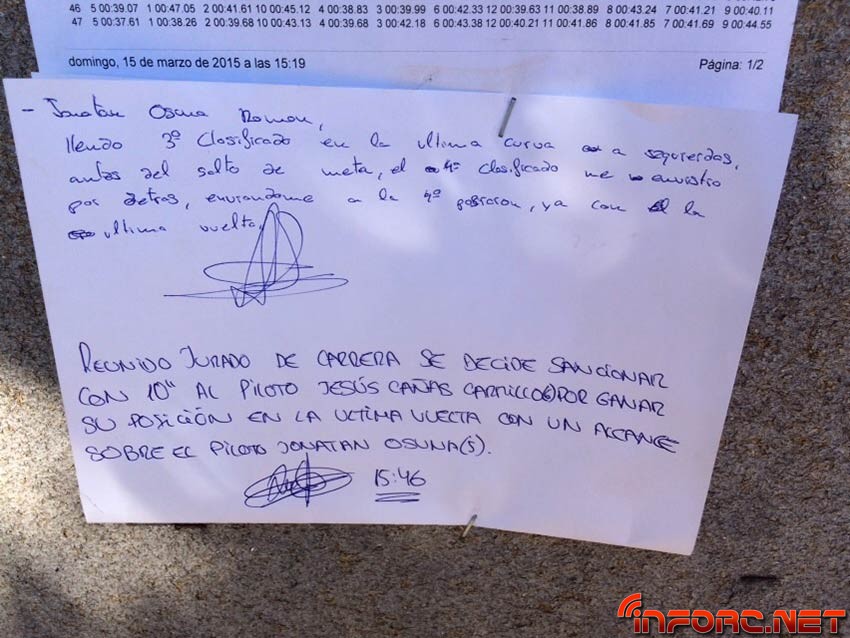 46 5 00:39.07 1 00:47.05 2 00:41.61 10 00:45.12 4 00:38.83 3 00:39.99 6 00:42.33 12 00:39.63 11 00:38.89 8 00:43.24 7 00:41.21 9 00:40.11
47 5 00:37.61 1 00:38.26 2 00:39.68 10 00:43.13 4 00:39.68 3 00:42.18 6 00:43.38 12 00:40.21 11 00:41.86 8 00:41.85 7 00:41.69 9 00:44.55
domingo, 15 de marzo de 2015 a las 15:19 Página: 1/2
- Jonatan Osuna Roman,
llendo 3º Clasificado en la ultima curva a
antes del salto de meta, el 4º Clasificado me envistio
por detras, a la 4º posicion, ya con la
ultima vuelta.
REUNIDO JURADO DE CARRERA SE DECIDE SANCIONAR
CON 10" AL PILOTO JESÚS CAÑAS CARRILLO(6) POR GANAR
SU POSICIÓN EN LA ULTIMA VUELTA CON UN ALCANCE
SOBRE EL PILOTO JONATAN OSUNA(5).
15:46
INFORC.NET